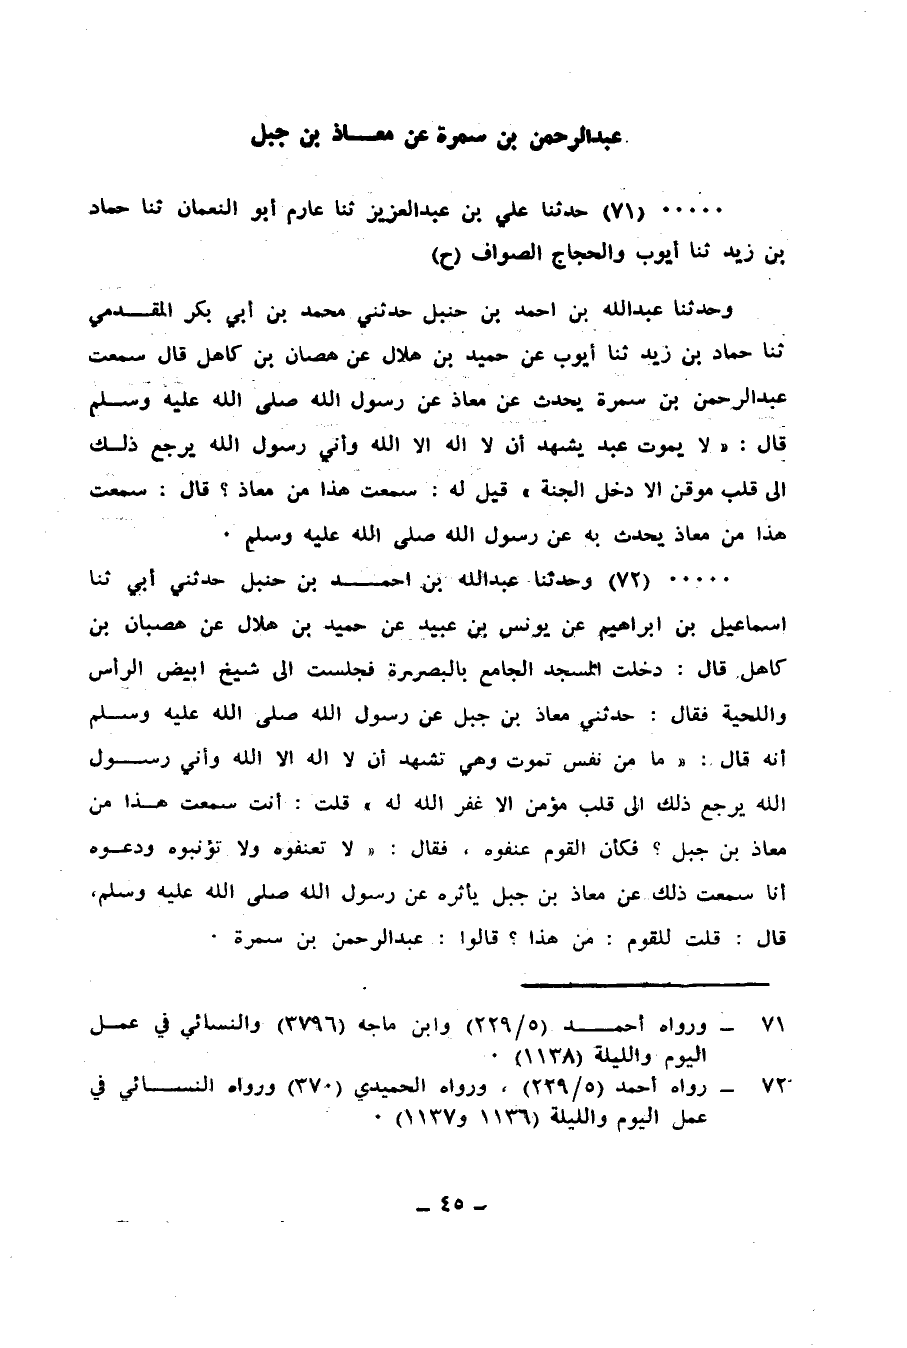 عبدالرحمن بن سمرة عن معـــاذ بن جبل
٠٠٠٠٠ (٧١) حدثنا علي بن عبدالعزيز ثنا عارم أبو النعمان ثنا حماد
بن زيد ثنا أيوب والحجاج الصواف (ح)
وحدثنا عبدالله بن احمد بن حنبل حدثني محمد بن أبي بكر المقـــدمي
ثنا حماد بن زيد ثنا أيوب عن حميد بن هلال عن هصان بن كاهل قال سمعت
عبدالرحمن بن سمرة يحدث عن معاذ عن رسول الله صلى الله عليه وســلم
قال : « لا يموت عبد يشهد أن لا اله الا الله وأني رسول الله يرجع ذلــك
الى قلب موقن الا دخل الجنة » قيل له : سمعت هذا من معاذ ؟ قال : سمعت
هذا من معاذ يحدث به عن رسول الله صلى الله عليه وسلم ٠
٠٠٠٠٠ (٧٢) وحدثنا عبدالله بن احمـــــد بن حنبل حدثني أبي ثنا
اسماعيل بن ابراهيم عن يونس بن عبيد عن حميد بن هلال عن هصبان بن
كاهل قال : دخلت المسجد الجامع بالبصرة فجلست الى شيخ ابيض الرأس
واللحية فقال : حدثني معاذ بن جبل عن رسول الله صلى الله عليه وســلم
أنه قال : « ما من نفس تموت وهي تشهد أن لا اله الا الله وأني رســـول
الله يرجع ذلك الى قلب مؤمن الا غفر الله له » قلت : أنت سمعت هــذا من
معاذ بن جبل ؟ فكان القوم عنفوه ، فقال : « لا تعنفوه ولا تؤنبوه ودعــوه
أنا سمعت ذلك عن معاذ بن جبل يأثره عن رسول الله صلى الله عليه وسلم،
قال : قلت للقوم : من هذا ؟ قالوا : عبدالرحمن بن سمرة ٠
٧١ ــ ورواه أحمــــد (٢٢٩/٥) وابن ماجه (٣٧٩٦) والنسائي في عمــل
اليوم والليلة (١١٣٨) ٠
٧٢ ــ رواه أحمد (٢٢٩/٥) ، ورواه الحميدي (٣٧٠) ورواه النســـائي في
عمل اليوم والليلة (١١٣٦ و١١٣٧) ٠
ــ ٤٥ ــ